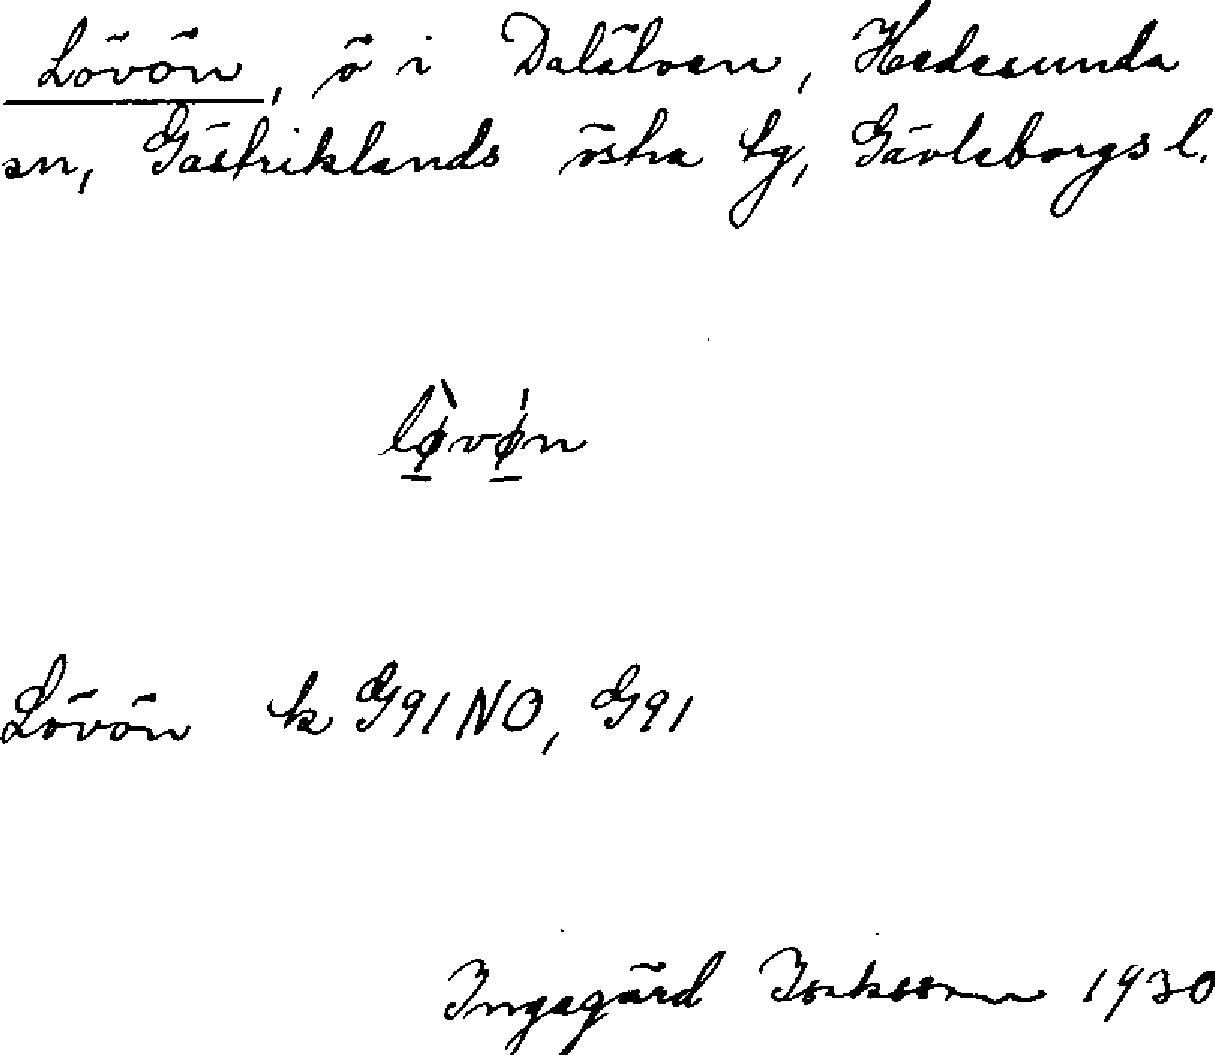 Lövön, ö i Dalälven, Hedesunda
sn, Gästriklands östra tg, Gävleborgs l.
lø̱̀vǿ̱n
Lövön k G91NO, G91
Ingegärd Isaksson 1930